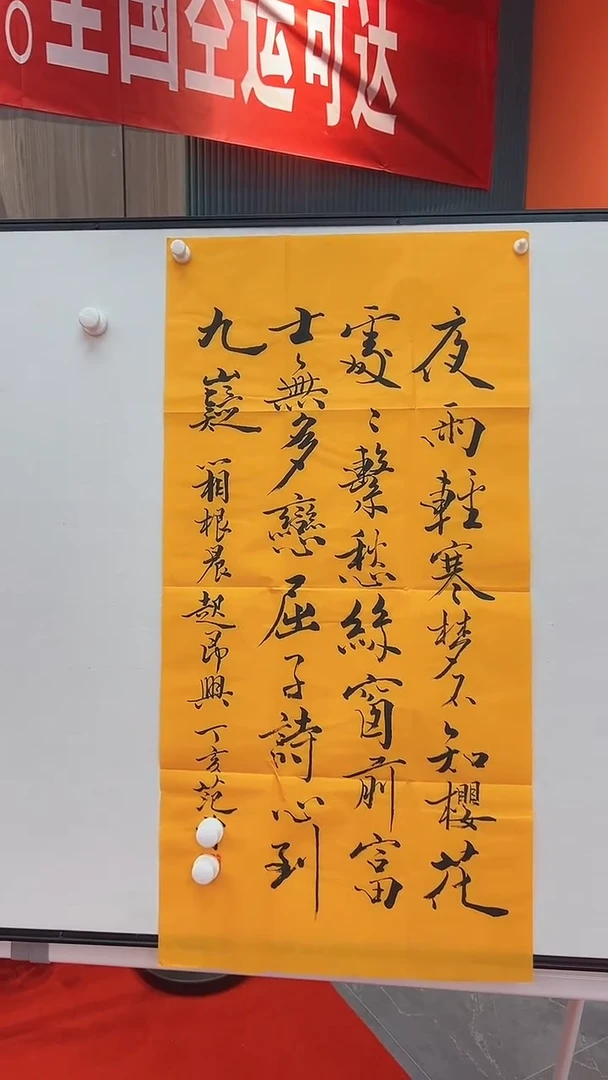 。全国空运可达
夜雨輕寒梦不知櫻花
處〻繫愁絲窗前富
士無多戀屈子詩心到
九嶷 箱根晨起即興 丁亥范